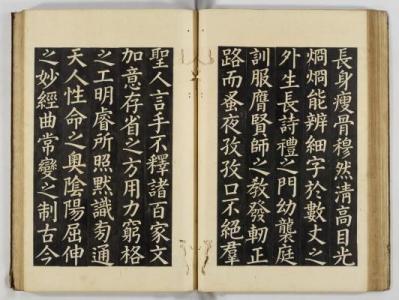 長身瘦骨穆然清高目光
烱烱能辨細字於數丈之
外生長詩禮之門幼襲庭
訓服膺賢師之教發軔正
路而蚤夜孜孜口不絕羣
聖人言手不釋諸百家文
加意存省之方用力窮格
之工明睿所照默識旁通
天人性命之奧陰陽屈伸
之妙經曲常變之制古今